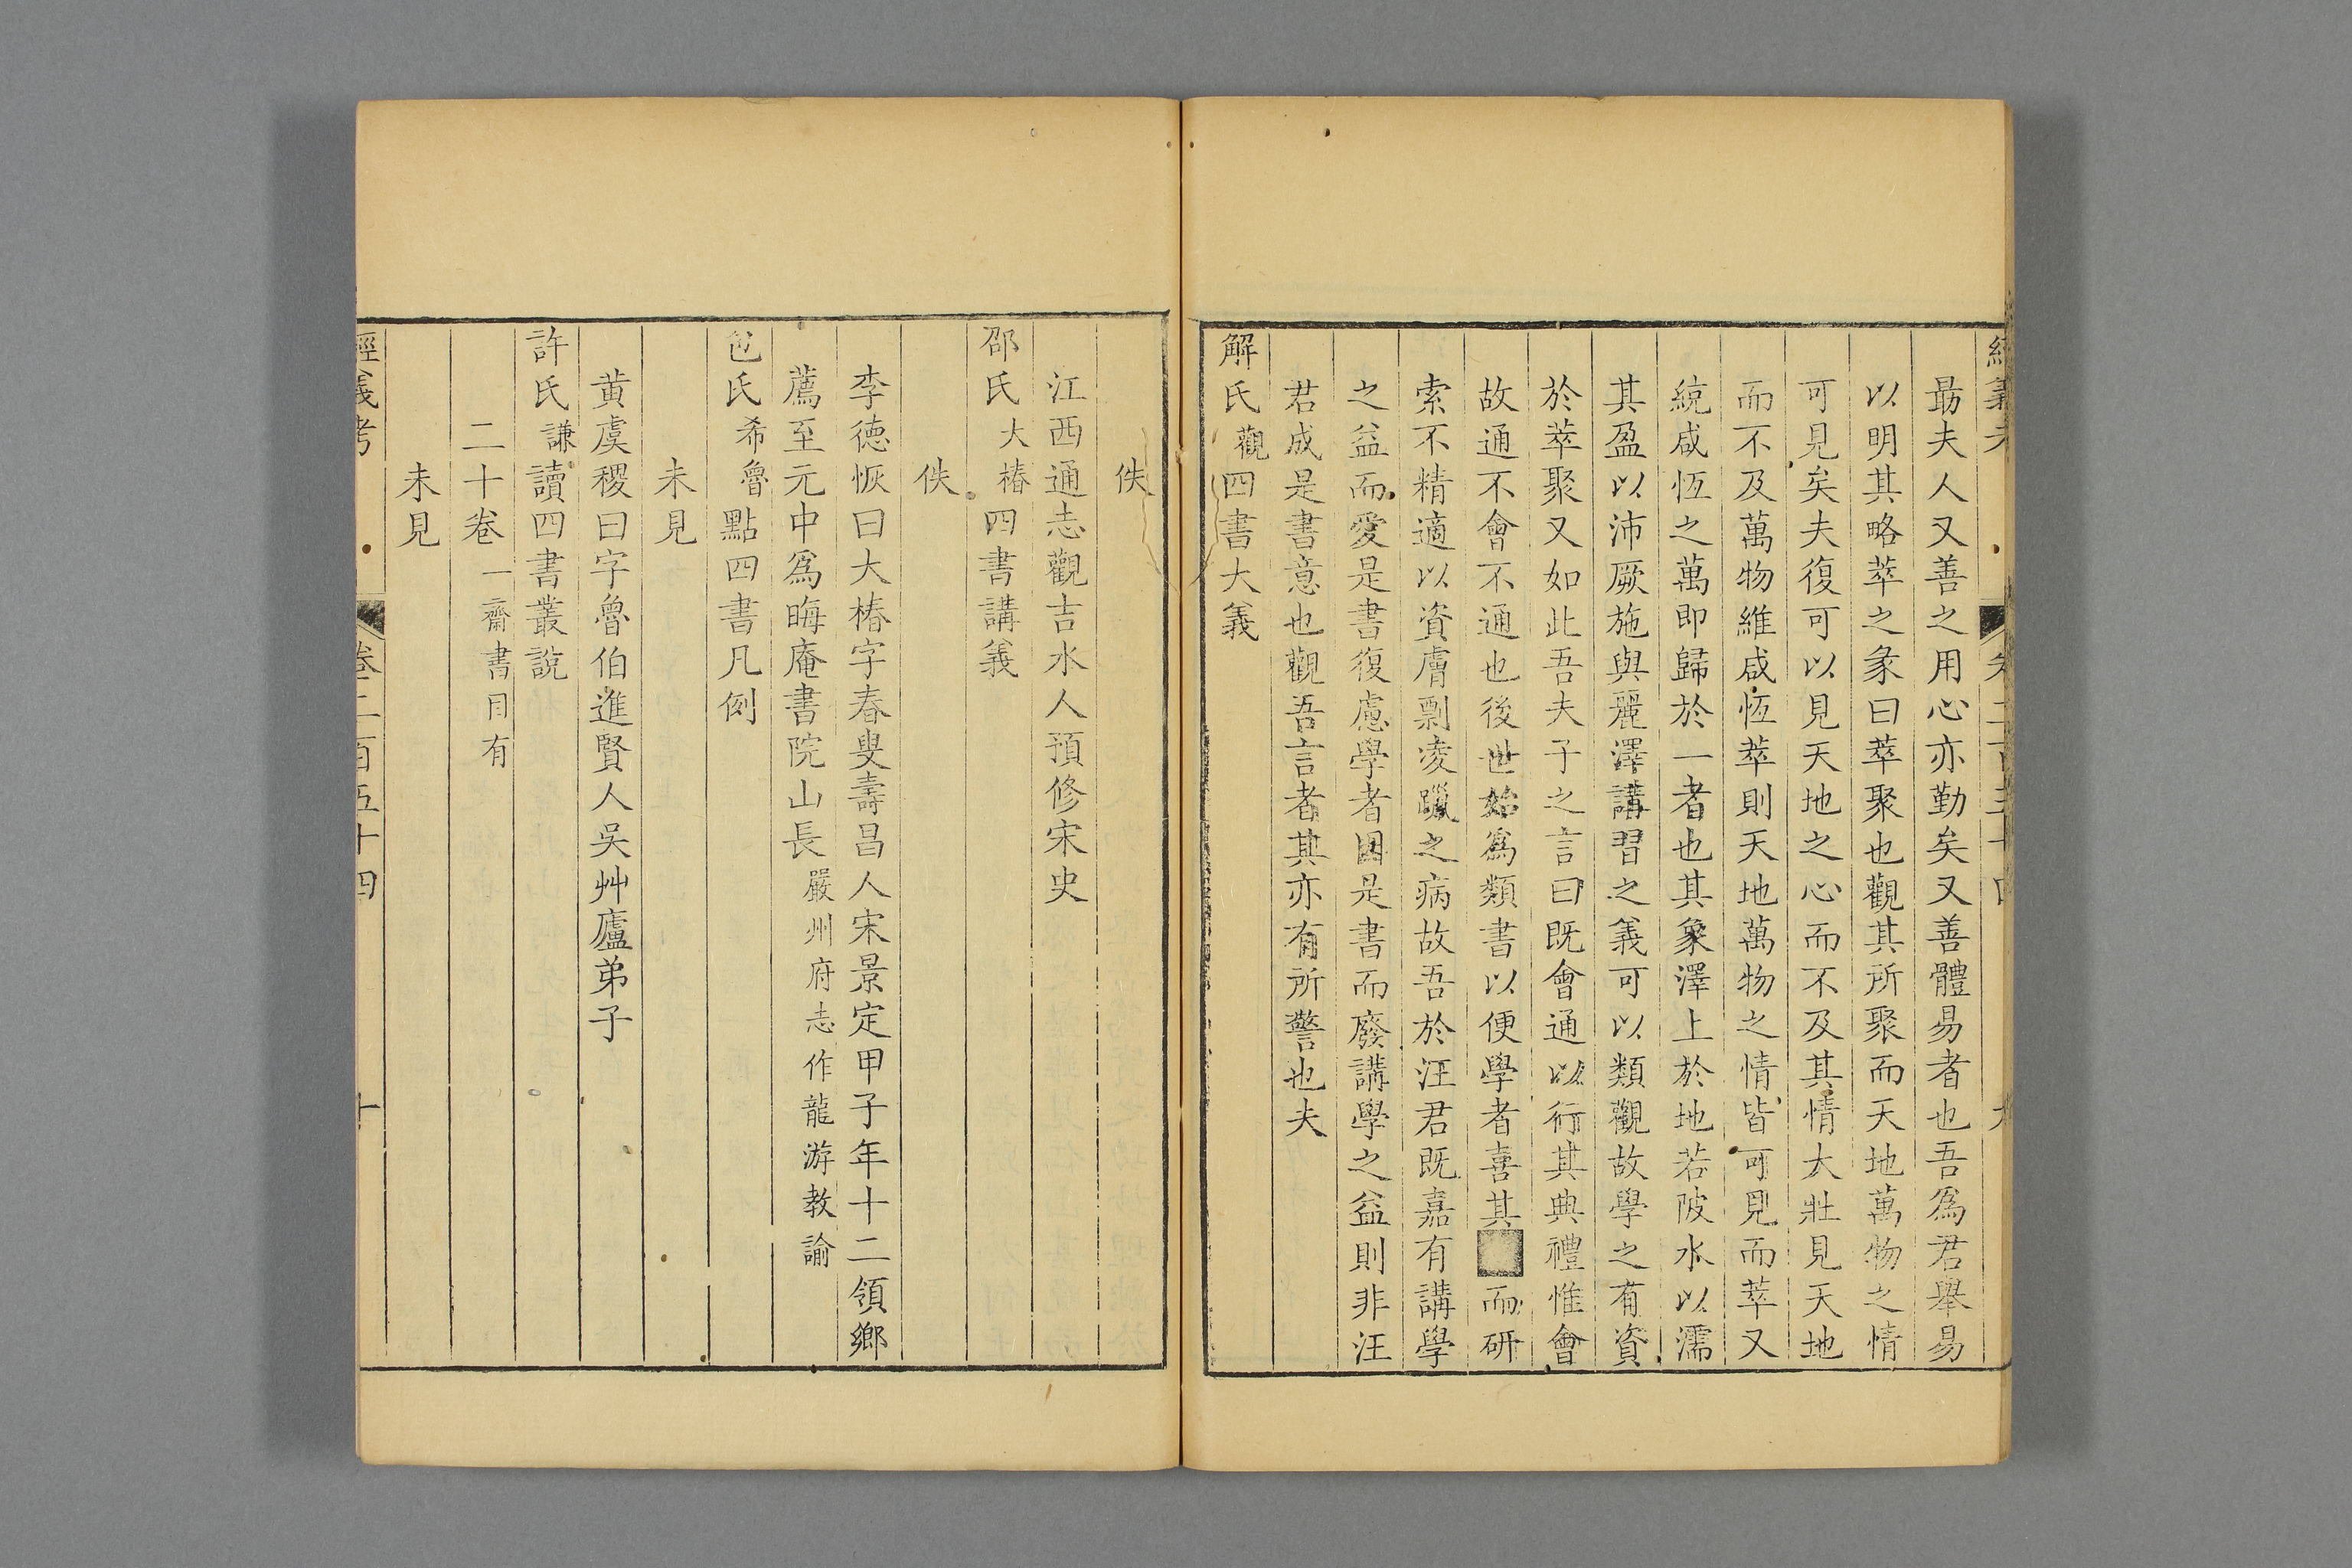 最夫人又善之用心亦勤矣又善體易者也吾爲君舉易
以明其略萃之彖曰萃聚也觀其所聚而天地萬物之情
可見矣夫復可以見天地之心而不及其情大壯見天地
而不及萬物維咸恆萃則天地萬物之情皆可見而萃又
統咸恆之萬即歸於一者也其象澤上於地若陂水以濡
其盈以沛厥施與麗澤講習之義可以類觀故學之有資
於萃聚又如此吾夫子之言曰既會通以行其典禮惟會
故通不會不通也後世始爲類書以便學者喜其而研
索不精適以資膚剽凌躐之病故吾於汪君既嘉有講學
之益而愛是書復慮學者因是書而廢講學之益則非汪
君成是書意也觀吾言者其亦有所警也夫
解氏觀四書大義
佚
江西通志觀吉水人預修宋史
邵氏大椿四書講義
佚
李德恢曰大椿字春叟壽昌人宋景定甲子年十二領鄉
薦至元中爲晦庵書院山長嚴州府志作龍游教諭
包氏希魯點四書凡例
未見
黃虞稷曰字魯伯進賢人吳艸廬弟子
許氏謙讀四書叢說
二十卷一齋書目有
未見
經義考 卷二百五十四 十